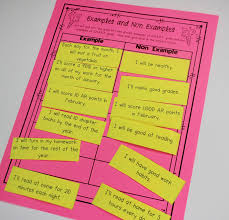 Examples and Non Examples
Example
Non Example
Each day for the month, I
will eat a fruit or
vegetable.
I will be healthy.
I'll score a 90% or higher
on all of my work for the
month of January.
I'll make good grades.
I'll score 10 AR points in
February.
I will score 1000 AR points
in February.
I will read 10 chapter
books by the end of the
year.
I will be good at reading.
I will turn in my homework
on time for the rest of the
year.
I will have good work
habits.
I'll read at home for 20
minutes each night.
I'll read at home for 5
hours every